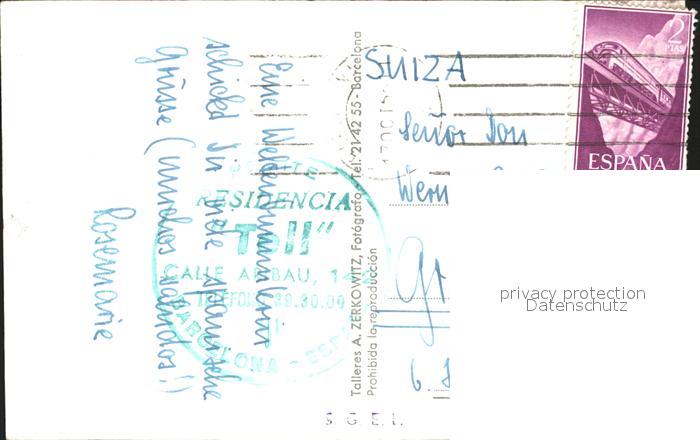 Eine Weltenbummlerin
schickt Dir viele spanische
Grüsse (muchos saludos!)
Rosemarie
RESIDENCIA
"Toll"
CALLE ARIBAU, 14
BARCELONA - ESPAÑA
Talleres A. ZERKOWITZ, Fotógrafo - Tel. 21 42 55 - Barcelona
Prohibida la reproducción
S G E L
SUIZA
Señor Don
Wern
6.
2
PTAS
ESPAÑA
privacy protection
Datenschutz